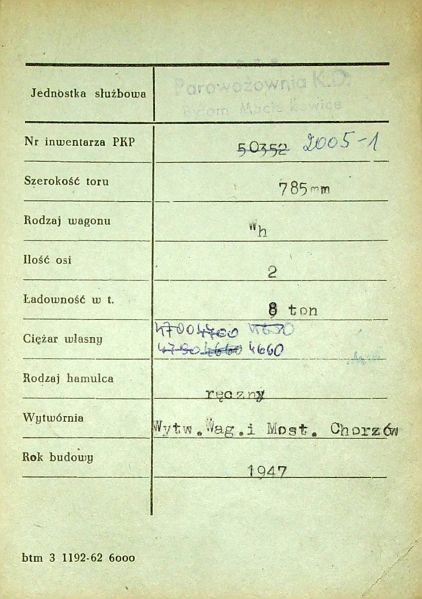 Parowozownia K.D.
Jednostka służbowa
Bytom Maciejkowice
Nr inwentarza PKP 50352 2005-1
Szerokość toru 785mm
Rodzaj wagonu Wh
Ilość osi 2
Ładowność w t. 8 ton
4700 4700 4650
Ciężar własny
4790 4660 4660
Rodzaj hamulca ręczny
Wytwórnia Wytw.Wag.i Most. Chorzów
Rok budowy 1947
btm 3 1192-62 6000